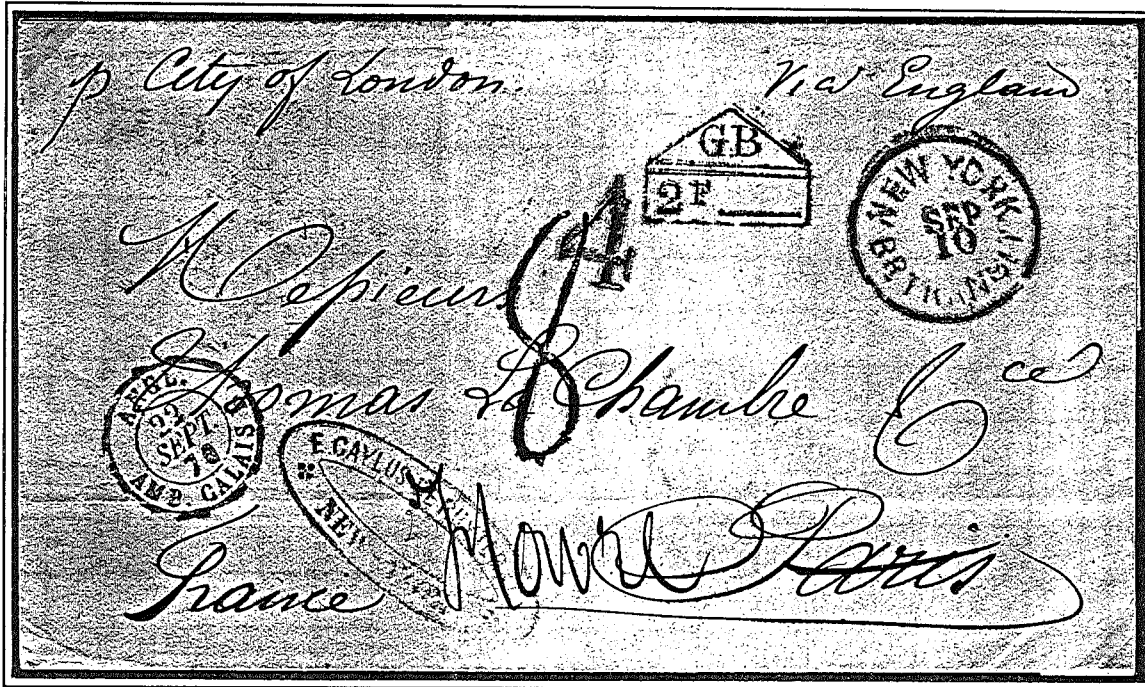 p City of London.
Via England
GB
2F
NEW YORK
SEP
10
BR. TRANSIT
4
8
Thomas La Chambre & Cie
ANGL.
22
SEPT.
AMB. CALAIS
E GAYLUS
NEW
Paris
France